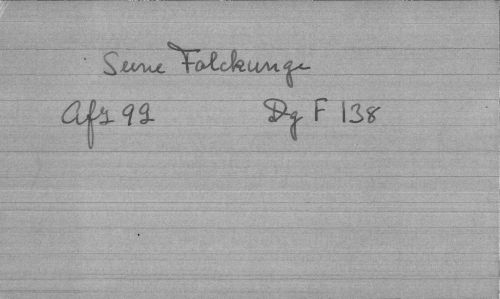 Sune Folckunge
Afz 92 Dg F 138